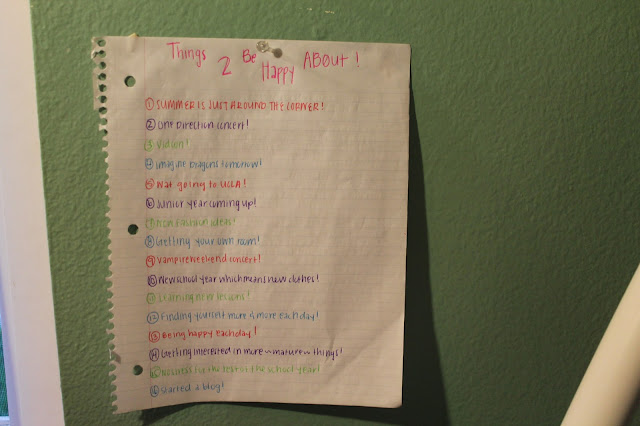 Things 2 Be Happy ABOUT!
① SUMMER IS JUST AROUND THE CORNER!
② One Direction concert!
③ Vidcon!
④ Imagine Dragons tomorrow!
⑤ Nat going to UCLA!
⑥ Junior year coming up!
⑦ fashion ideas!
⑧ Getting your own room!
⑨ Vampire weekend concert!
⑩ New school year which means new clothes!
⑪ Learning new lessons!
⑫ Finding yourself more & more each day!
⑬ Being happy each day!
⑭ Getting interested in more ~mature~ things!
⑮ for the rest of the school year!
⑯ Started a blog!